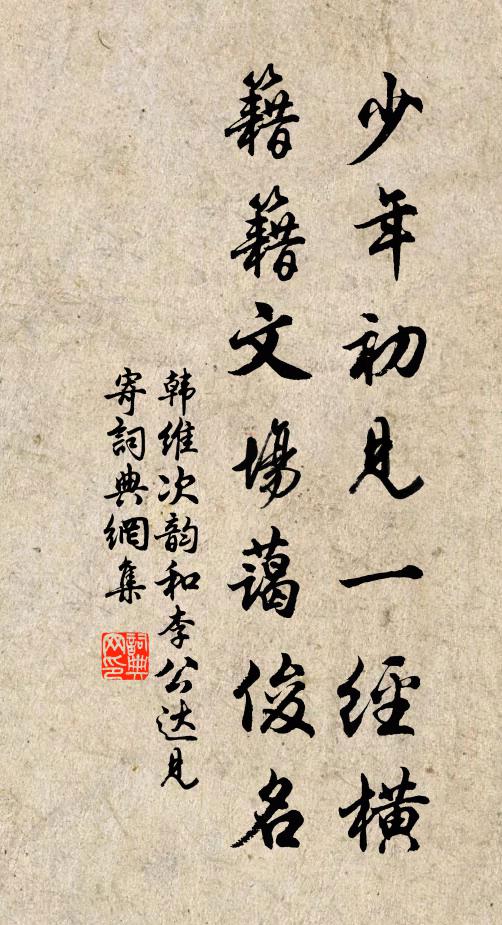 少年初見一經橫
籍籍文場藹俊名
韩維次韵和李公达見
寄詞典網集
詞典网印